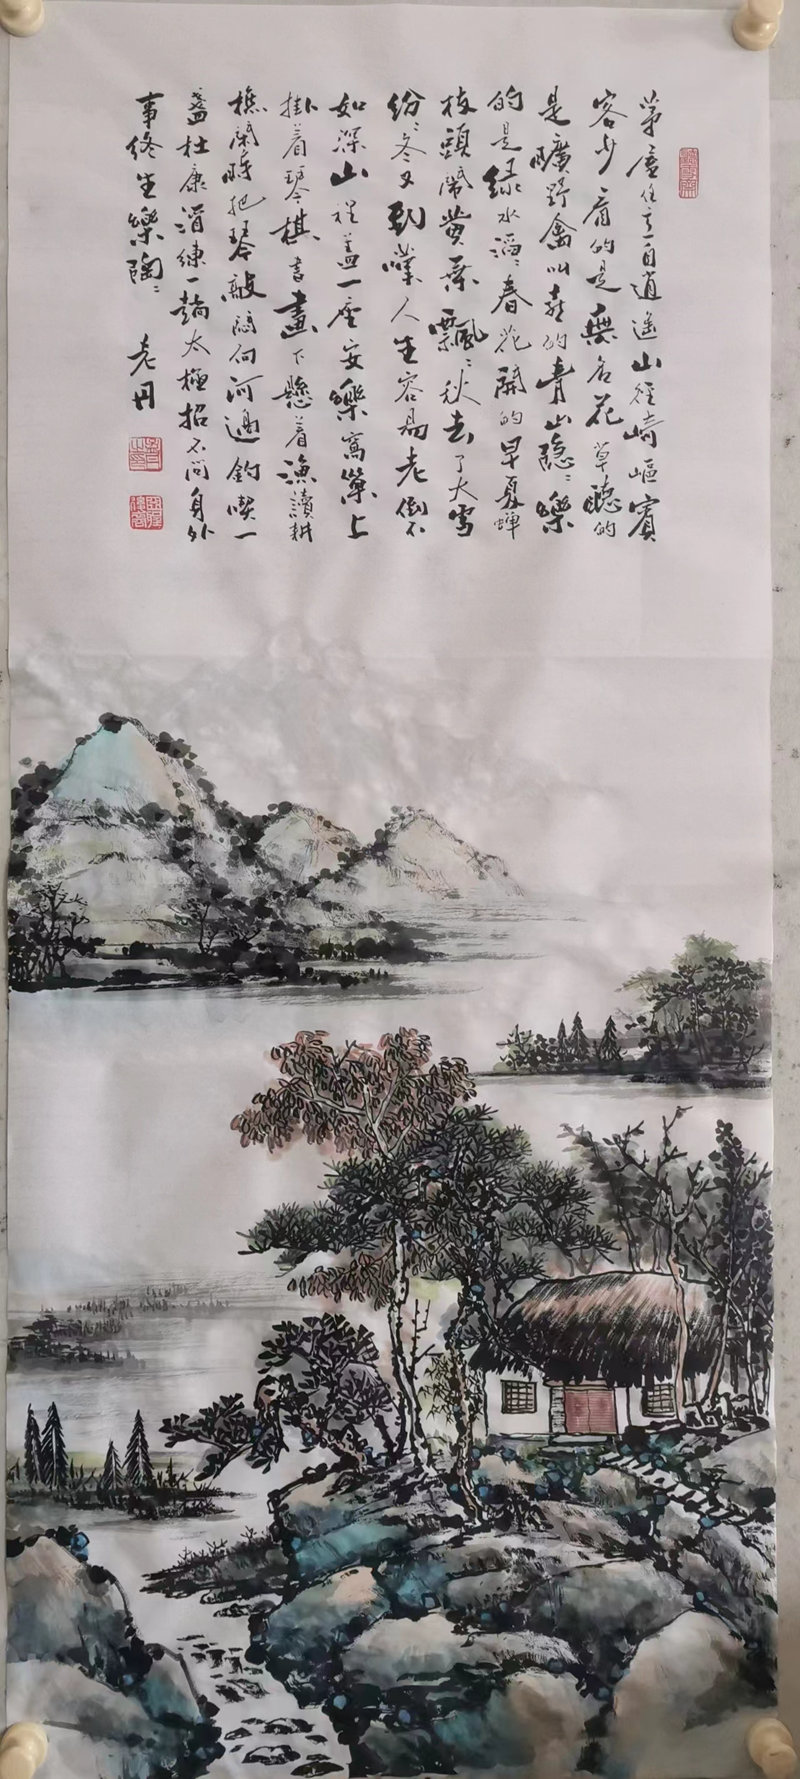 茅廬住亦自逍遥山徑崎嶇賓
客少看的是無名花草聽的
是曠野禽叫喜的青山隐隐樂
的是绿水滔滔春花開的早夏蟬
枝頭鬧黄葉飄飄秋去了大雪
纷纷冬又到嘆人生容易老倒不
如深山裡盖一座安樂窩窠上
掛着琴棋書畫下懸着渔讀耕
樵閑時把琴敲隔向河邊釣喫一
盞杜康酒練一趟太極招不问身外
事终生樂陶陶
老丹